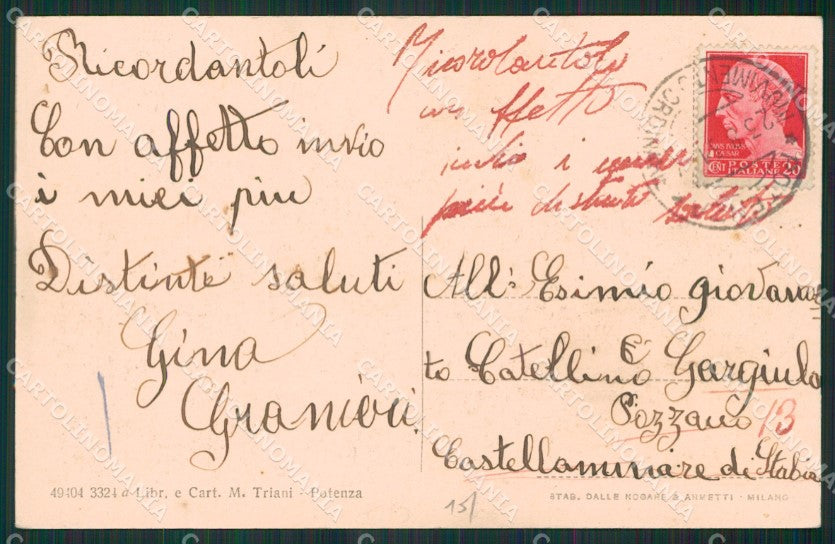 Ricordantoli
Con affetto invio
i miei piu
Distinte saluti
Gina
Granieri
Ricordantolo
con affetto
invio i miei
più distinti saluti
IVLIVS
CAESAR
CENT POSTE 20
ITALIANE
All: Esimio giovanot
to Catellino Gargiulo
Pozzano 13
Castellammare di Stabia
49404 3324 a Libr. e Cart. M. Triani - Potenza
15/
STAB. DALLE NOGARE & ARMETTI - MILANO
CARTOLINOMANIA